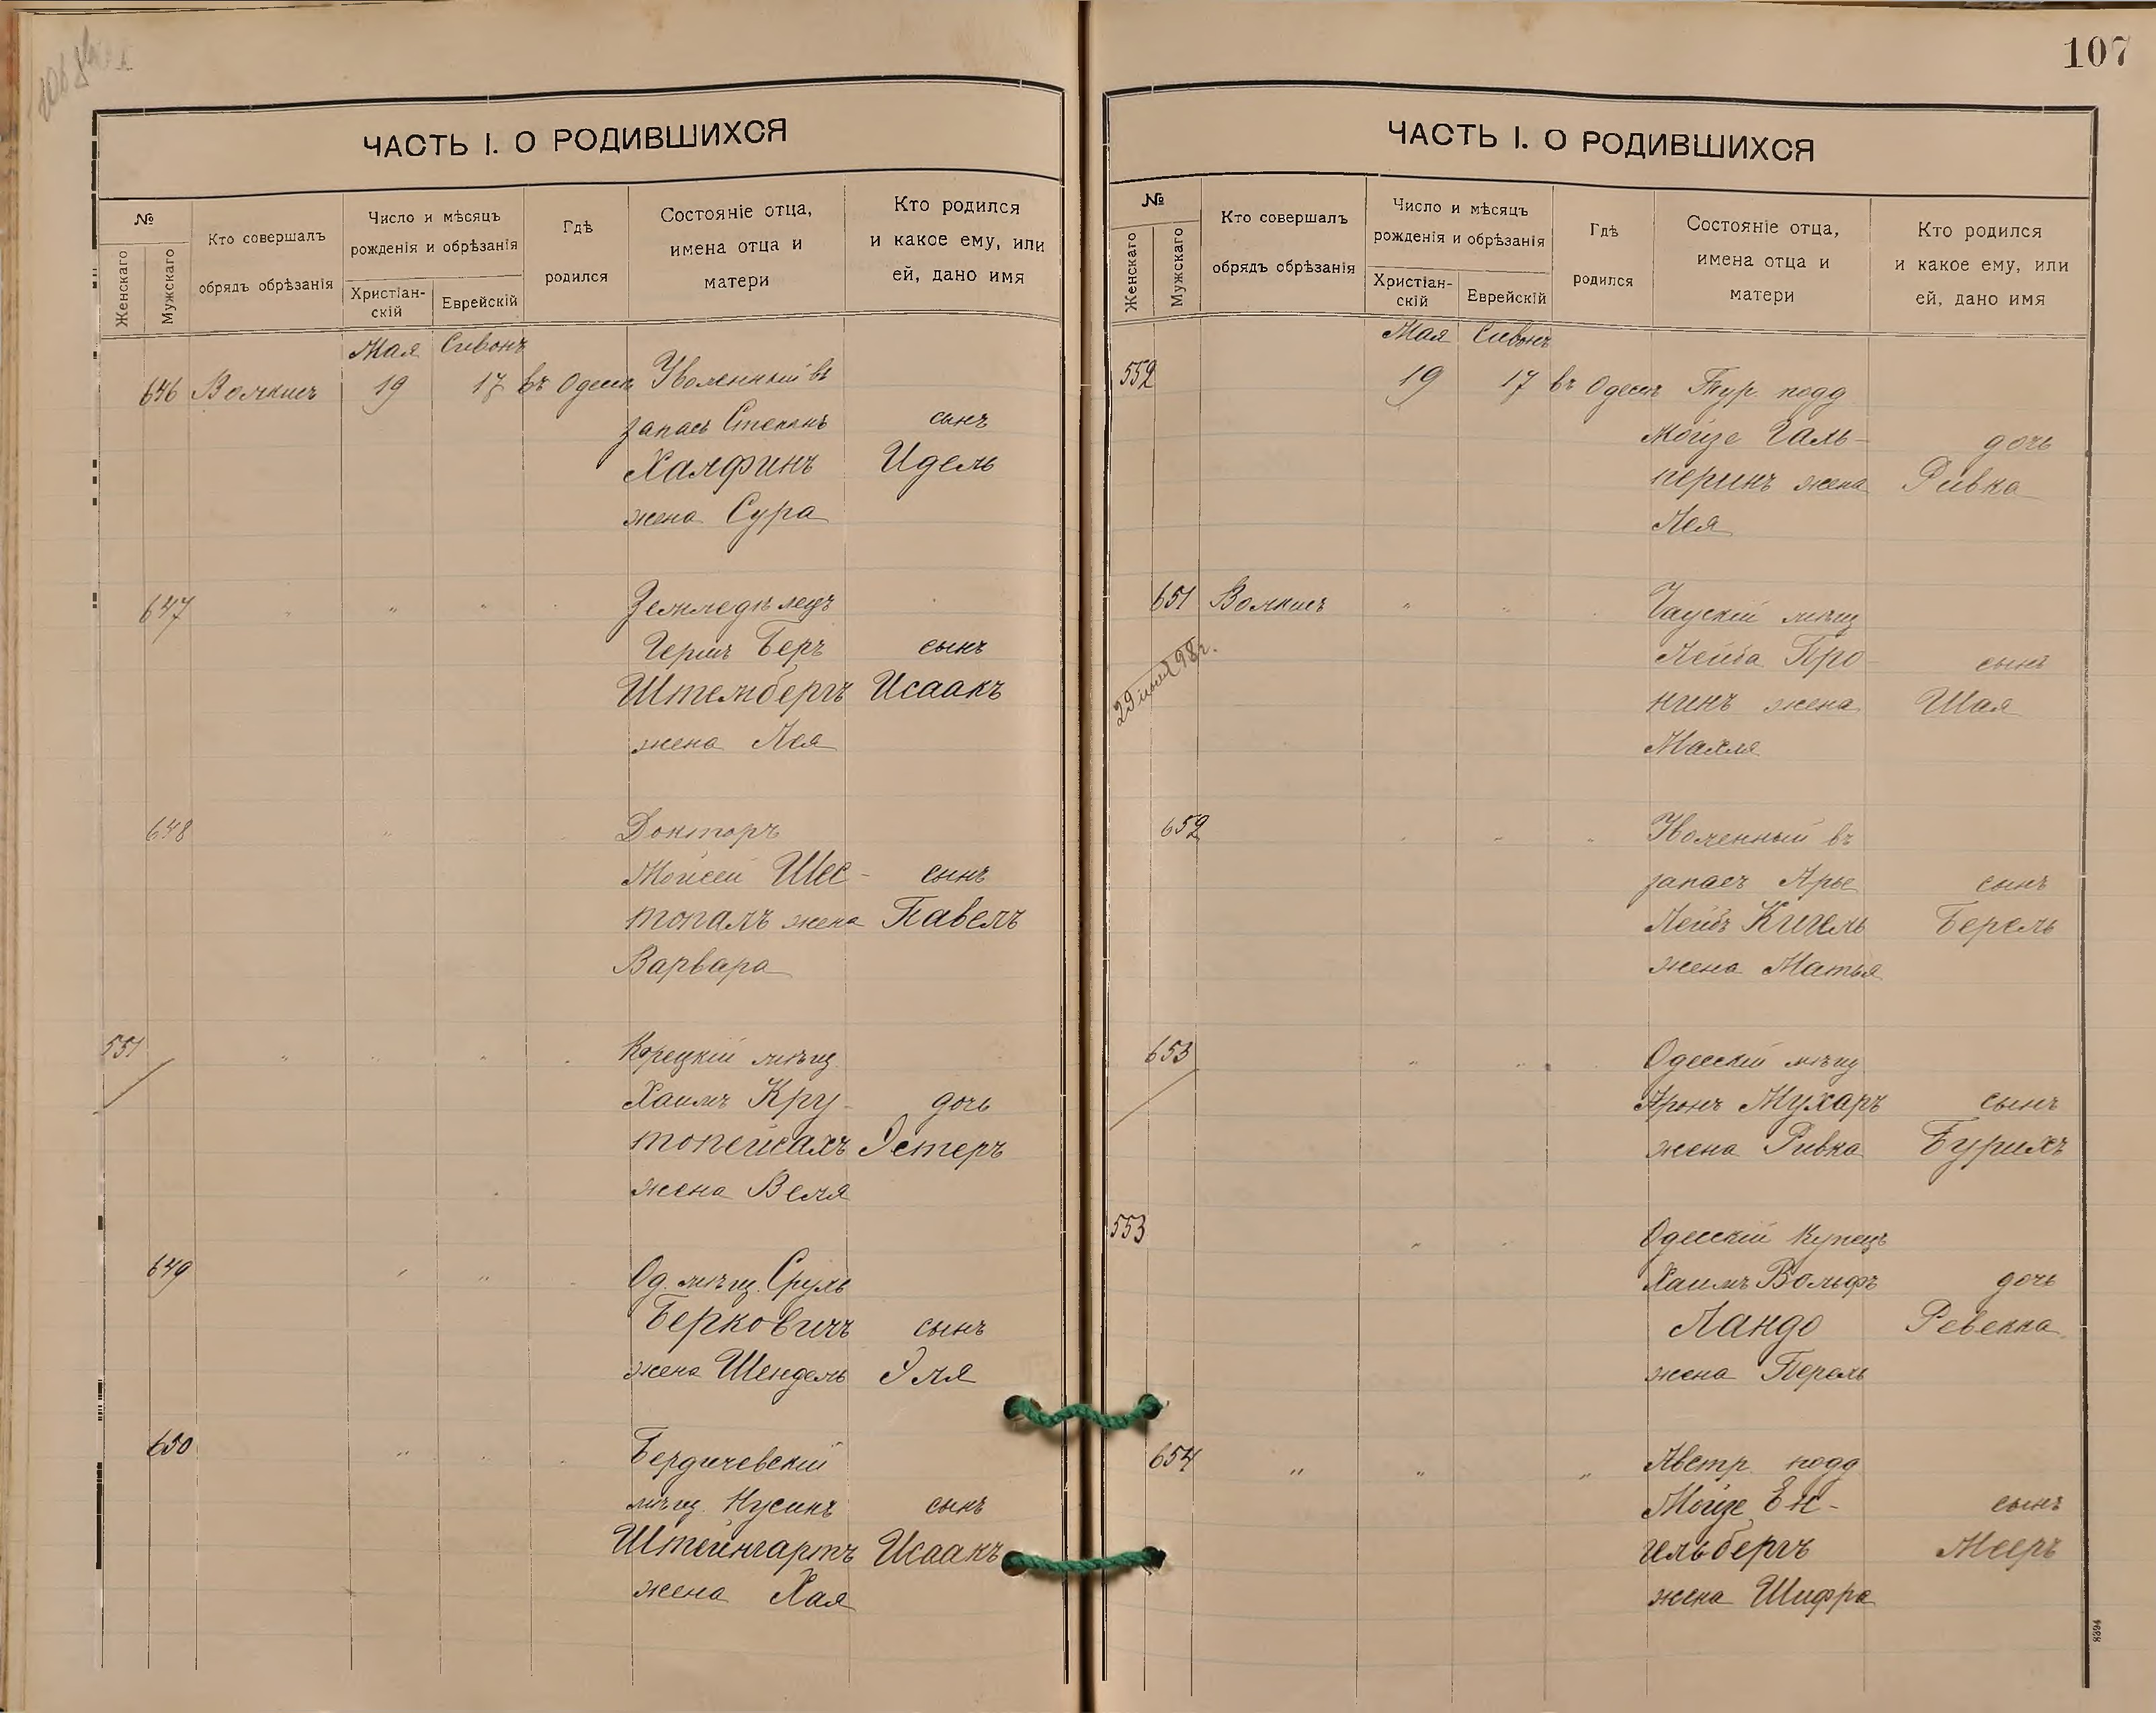 107
ЧАСТЬ I. О РОДИВШИХСЯ
№
Женскаго
Мужскаго
Кто совершалъ
обрядъ обрѣзанія
Число и мѣсяцъ
рожденія и обрѣзанія
Христіан-
скій
Еврейскій
Гдѣ
родился
Состояніе отца,
имена отца и
матери
Кто родился
и какое ему, или
ей, дано имя
Мая Сивонъ
646 19 17 въ Одессѣ Уволенный въ
запасъ сынъ
Халфинъ Идель
жена Сура
647 " " Земледѣлецъ
Гершъ Беръ сынъ
Штембергъ Исаакъ
жена Лея
648 " " Докторъ
Мойсей Шес- сынъ
топалъ жена Павелъ
Варвара
551 " " " Корецкій мѣщ.
Хаимъ Кру- дочь
топейсахъ Эстеръ
жена Веля
649 " " Од. мѣщ. Сруль
Берковичъ сынъ
жена Шендель Эля
650 " " Бердичевскій
мѣщ. Нусинъ сынъ
Штейнгартъ Исаакъ
жена Хая
ЧАСТЬ I. О РОДИВШИХСЯ
№
Женскаго
Мужскаго
Кто совершалъ
обрядъ обрѣзанія
Число и мѣсяцъ
рожденія и обрѣзанія
Христіан-
скій
Еврейскій
Гдѣ
родился
Состояніе отца,
имена отца и
матери
Кто родился
и какое ему, или
ей, дано имя
Мая Сивонъ
552 19 17 въ Одессѣ Тур. подд
Мойзе Галь- дочь
перинъ жена Ривка
Лея
651 " " Чаускій мѣщ
Лейба Про- сынъ
нинъ жена Шая
Малля
652 " " " Уволенный въ
запасъ Арье сынъ
Лейбъ Кигель Берель
жена Матья
653 " " Одесскій мѣщ
Аронъ Мухаръ сынъ
жена Ривка Бурихъ
553 " " Одесскій Купецъ
Хаимъ Вольфъ дочь
Ландо Ревекка
жена Перель
654 " " " Австр. подд
Мойзе Ен- сынъ
гельбергъ Мееръ
жена Шифра
8394